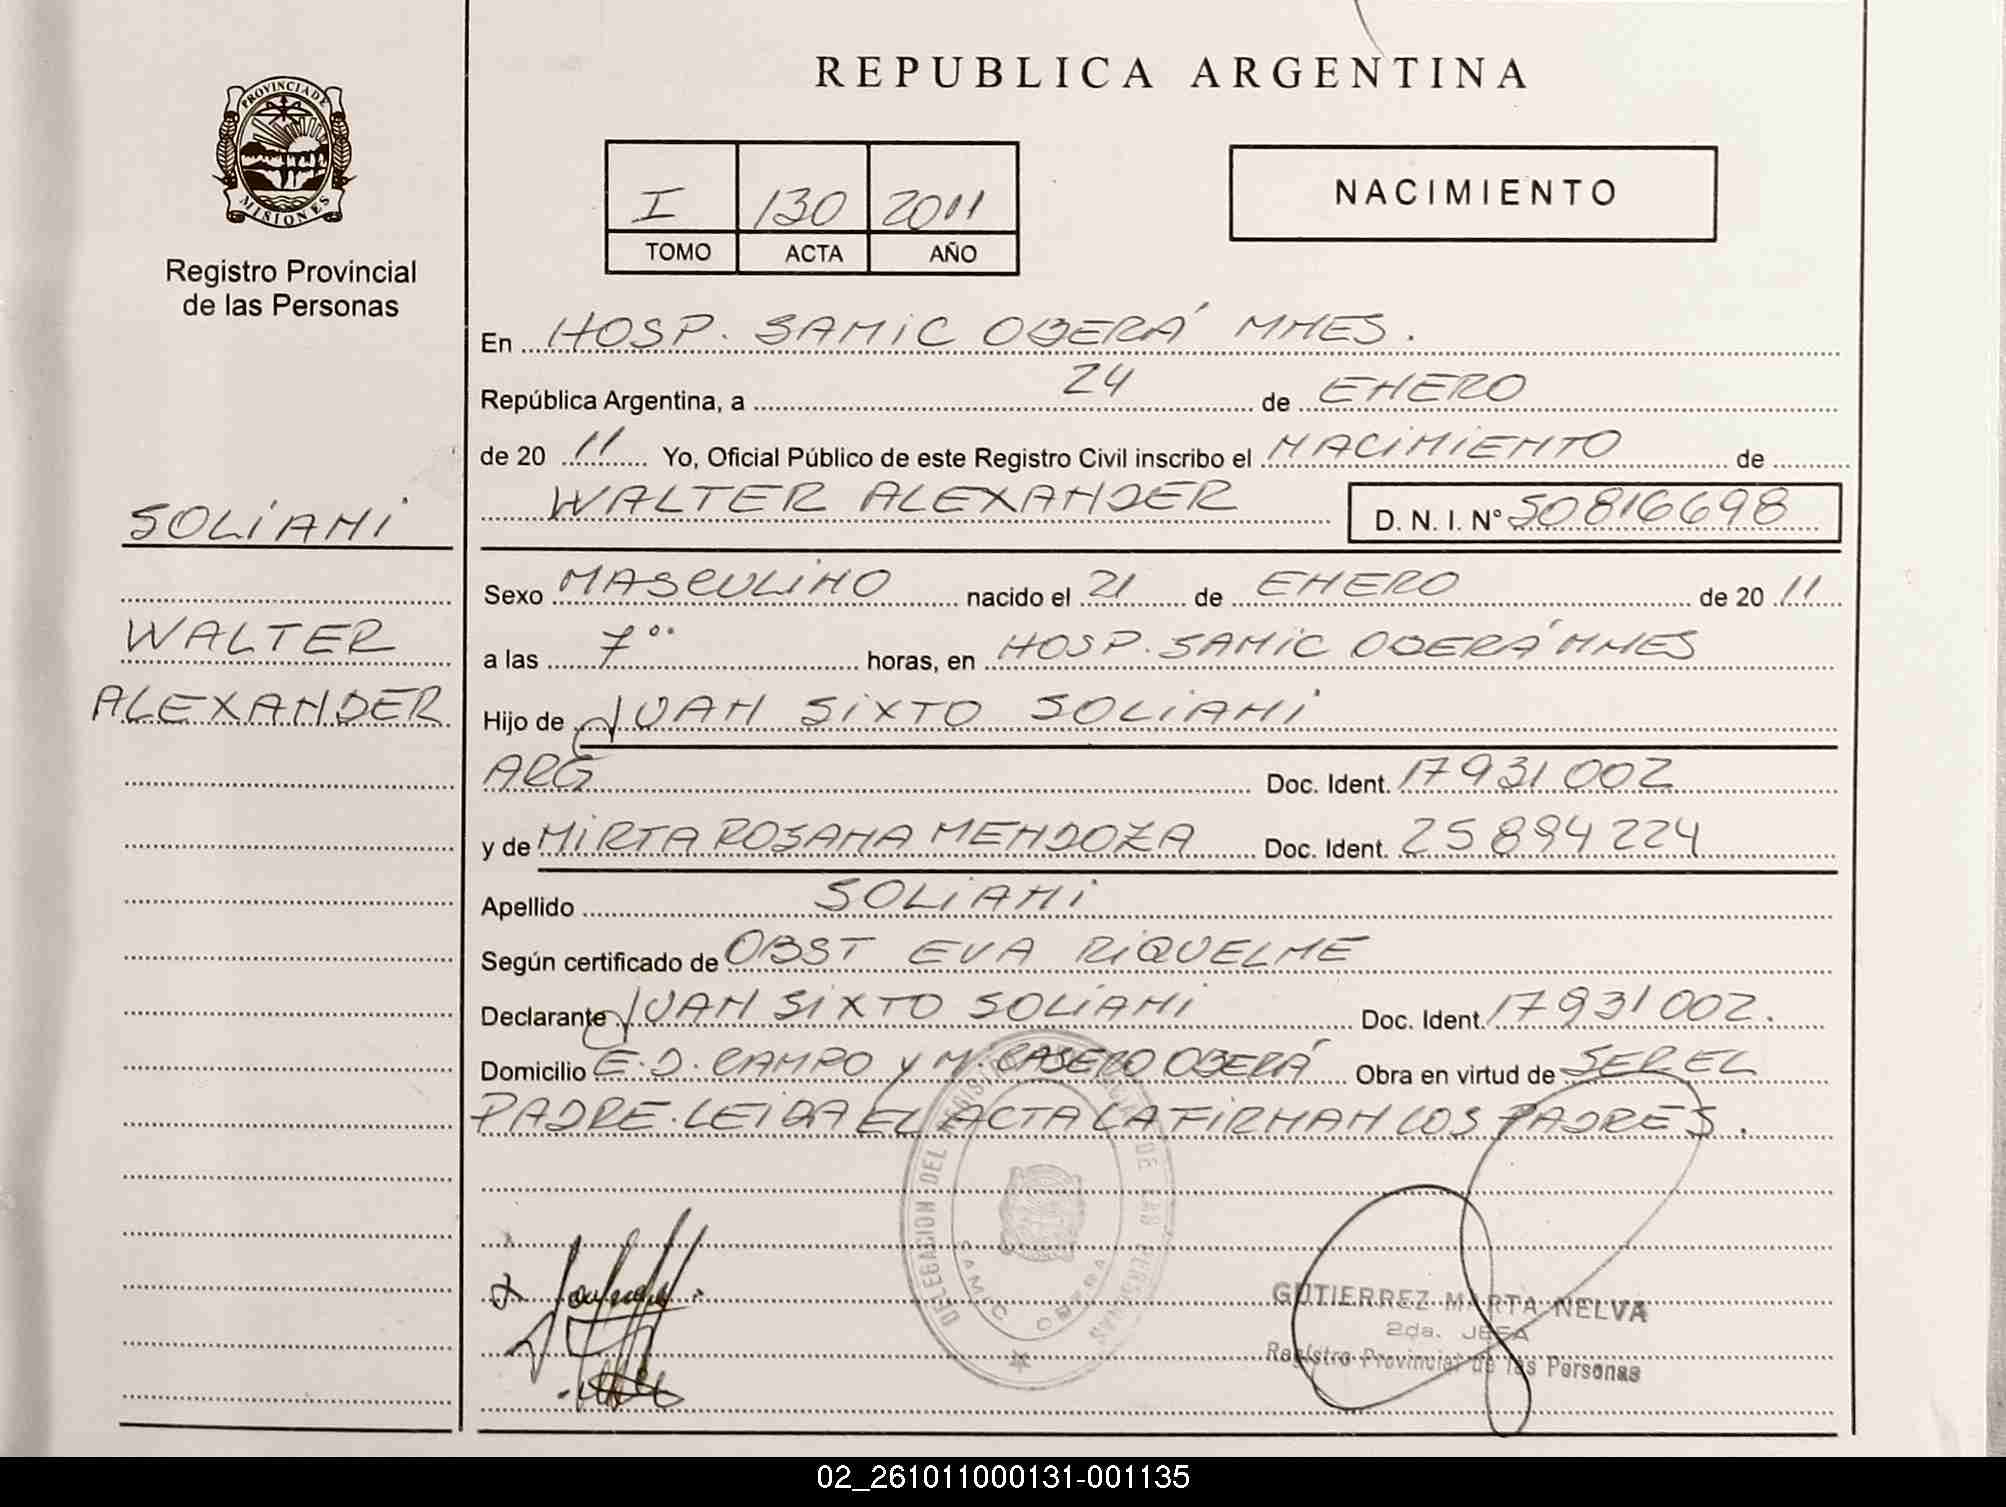 REPUBLICA ARGENTINA
PROVINCIA DE
MISIONES
Registro Provincial
de las Personas
I 130 2011
TOMO ACTA AÑO
NACIMIENTO
SOLiANi
WALTER
ALEXANDER
En HOSP. SAMiC OBERÁ MNES.
República Argentina, a 24 de ENERO
de 20 11 Yo, Oficial Público de este Registro Civil inscribo el NACiMiENTO de
WALTER ALEXANDER D. N. I. N° 50816698
Sexo MASCULiNO nacido el 21 de ENERO de 20 11
a las 7°° horas, en HOSP. SAMiC OBERÁ MNES
Hijo de JUAN SiXTO SOLiANi
ARG Doc. Ident. 17931002
y de MiRTA ROSANA MENDOZA Doc. Ident. 25894224
Apellido SOLiANi
Según certificado de OBST EVA RiQUELME
Declarante JUAN SiXTO SOLiANi Doc. Ident. 17931002.
Domicilio E. D. CAMPO y M. CASERO OBERÁ Obra en virtud de SER EL
PADRE. LEiDA EL ACTA LA FiRMAN LOS PADRES.
DELEGACION DEL REGISTRO PROVINCIAL DE LAS PERSONAS
SAMIC OBERA
GUTIERREZ MARTA NELVA
2da. JEFA
Registro Provincial de las Personas
02_261011000131-001135